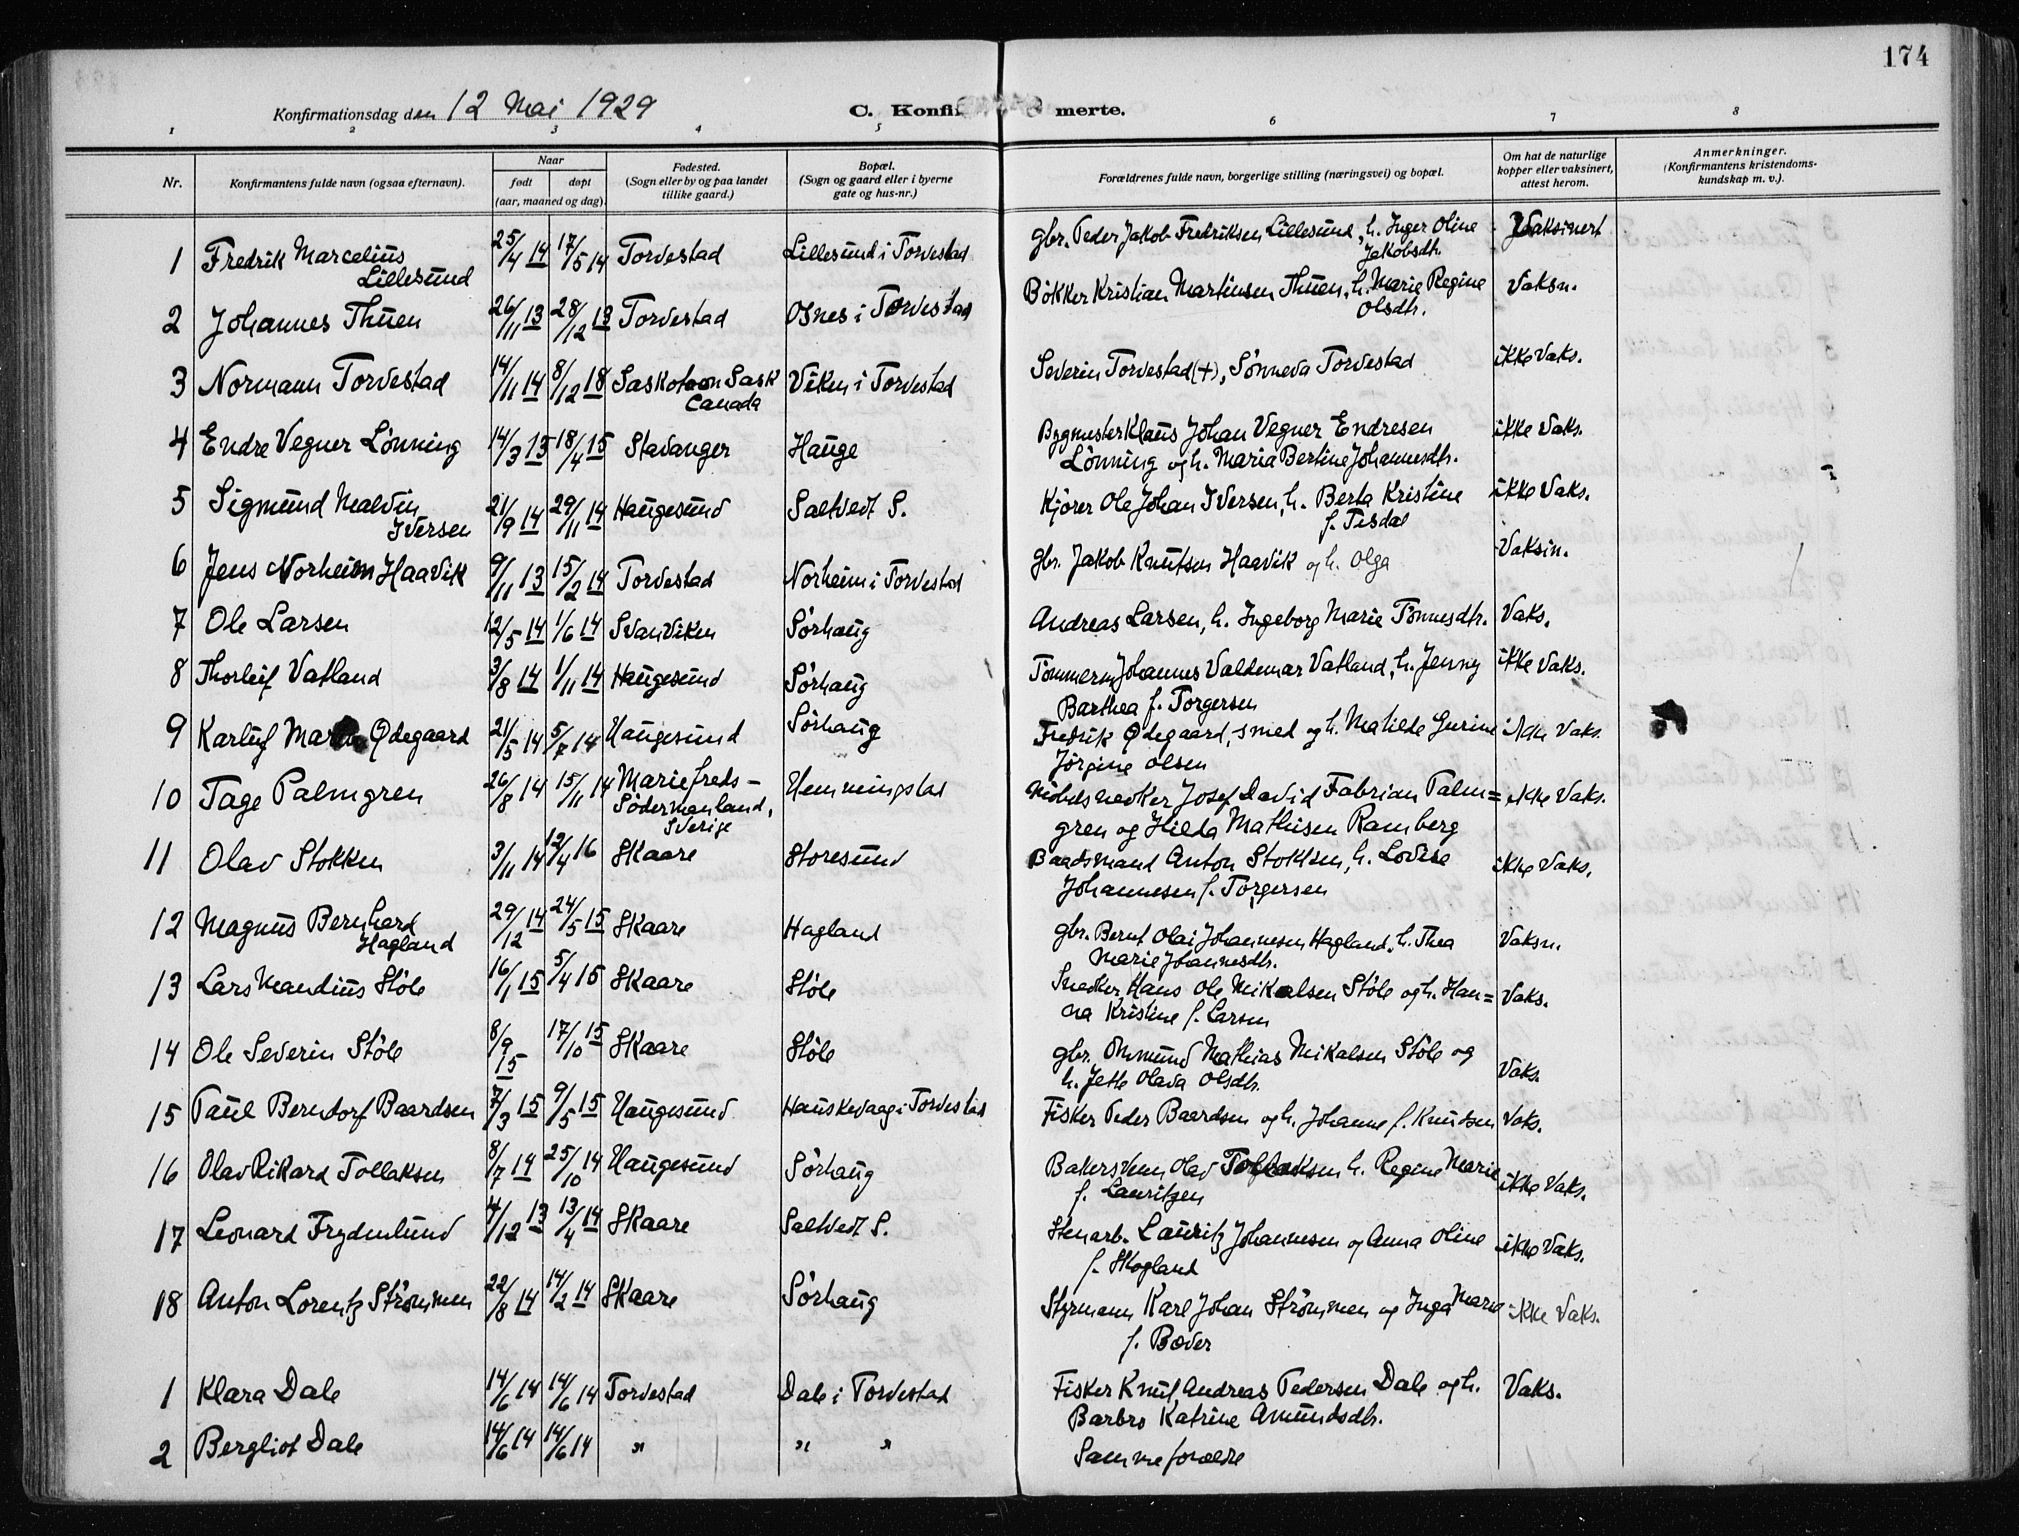 174
Konfirmationsdag den 12 Mai 1929
C. Konfirmerte.
1 2 3 4 5 6 7 8
Nr.
Konfirmantens fulde navn (ogsaa efternavn).
Naar
født døpt
(aar, maaned og dag).
Fødested.
(Sogn eller by og paa landet
tillike gaard.)
Bopæl.
(Sogn og gaard eller i byerne
gate og hus-nr.)
Forældrenes fulde navn, borgerlige stilling (næringsvei) og bopæl.
Om hat de naturlige
kopper eller vaksinert,
attest herom.
Anmerkninger.
(Konfirmantens kristendoms-
kundskap m. v.).
1 Fredrik Marcelius Lillesund 25/4 14 17/5 14 Torvestad Lillesund i Torvestad gbr. Peder Jakob Fredriksen Lillesund, h. Inger Oline Jakobsdtr. Vaksinert
2 Johannes Thuen 26/11 13 28/12 13 Torvestad Osnes i Torvestad Bøkker Kristian Martinsen Thuen, h. Marie Regine Olsdtr. Vaksn.
3 Normann Torvestad 14/11 14 8/12 18 Saskatoon Sask Canada Viken i Torvestad Severin Torvestad (+), Sønneva Torvestad ikke Vaks.
4 Endre Vegner Lønning 14/3 15 18/4 15 Stavanger Hauge Bygmester Klaus Johan Vegner Endresen Lønning og h. Maria Bertine Johannesdtr. ikke Vaks.
5 Sigmund Malvin Iversen 21/9 14 29/11 14 Haugesund Saltvedt S. Kjører Ole Johan Iversen, h. Berta Kristine f. Tisdal ikke Vaks.
6 Jens Norheim Haavik 9/11 13 15/2 14 Torvestad Norheim i Torvestad gbr. Jakob Knutsen Haavik og h. Olga Vaksin.
7 Ole Larsen 12/5 14 1/6 14 Svanviken Sørhaug Andreas Larsen, h. Ingeborg Marie Tønnesdtr. Vaks.
8 Thorleif Vatland 3/8 14 1/11 14 Haugesund Sørhaug Tømmerm. Johannes Valdemar Vatland, h. Jenny Barthea f. Torgersen ikke Vaks.
9 Karluf Ødegaard 21/5 14 5/7 14 Haugesund Sørhaug Fredrik Ødegaard, smed og h. Matilde Gurine Jørgine Olsen ikke Vaks.
10 Tage Palmgren 26/8 14 15/11 14 Mariefreds - Södermanland, Sverige Hemmingstad Møbelsnedker Josef David Fabrian Palm= gren og Hilda Mathisen Ramberg ikke Vaks.
11 Olav Stokken 3/11 14 12/4 16 Skaare Storesund Baadsmand Anton Stokken, h. Lovise Johannesen f. Torgersen ikke Vaks.
12 Magnus Bernhard Hagland 29/12 14 24/5 15 Skaare Hagland gbr. Bernt Olai Johannesen Hagland, h. Thea Marie Johannesdtr. Vaksn.
13 Lars Mandius Støle 16/1 15 5/4 15 Skaare Støle Snedker Hans Ole Mikalsen Støle og h. Han= na Kristine f. Larsen Vaks.
14 Ole Severin Støle 8/9 15 17/10 15 Skaare Støle gbr. Ommund Mathias Mikalsen Støle og h. Jette Olava Olsdtr. Vaks.
15 Paul Berntorf Baardsen 7/3 15 9/5 15 Haugesund Hauskevaag i Torvestad Fisker Peder Baardsen og h. Johanne f. Knudsen Vaks.
16 Olav Rikard Tollaksen 8/7 14 25/10 14 Haugesund Sørhaug Bakersvenn Olav Tollaksen h. Regine Marie f. Lauritzen ikke Vaks.
17 Leonard Frydenlund 4/12 13 13/4 14 Skaare Saltvedt S. Stenarb. Lauritz Johannesen og Anna Oline f. Skogland ikke Vaks.
18 Anton Lorentz Strømmen 22/8 14 14/2 14 Skaare Sørhaug Styrmann Karl Johan Strømmen og Inga Marie f. Bæver ikke Vaks.
1 Klara Dale 14/6 14 14/6 14 Torvestad Dale i Torvestad Fisker Knut Andreas Pedersen Dale og h. Barbro Katrine Amundsdtr. Vaks.
2 Bergliot Dale 14/6 14 14/6 14 " " " Samme forældre